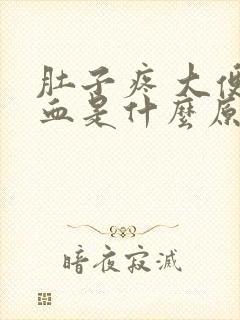 肚子疼大便
血是什麼原
暗夜寂滅